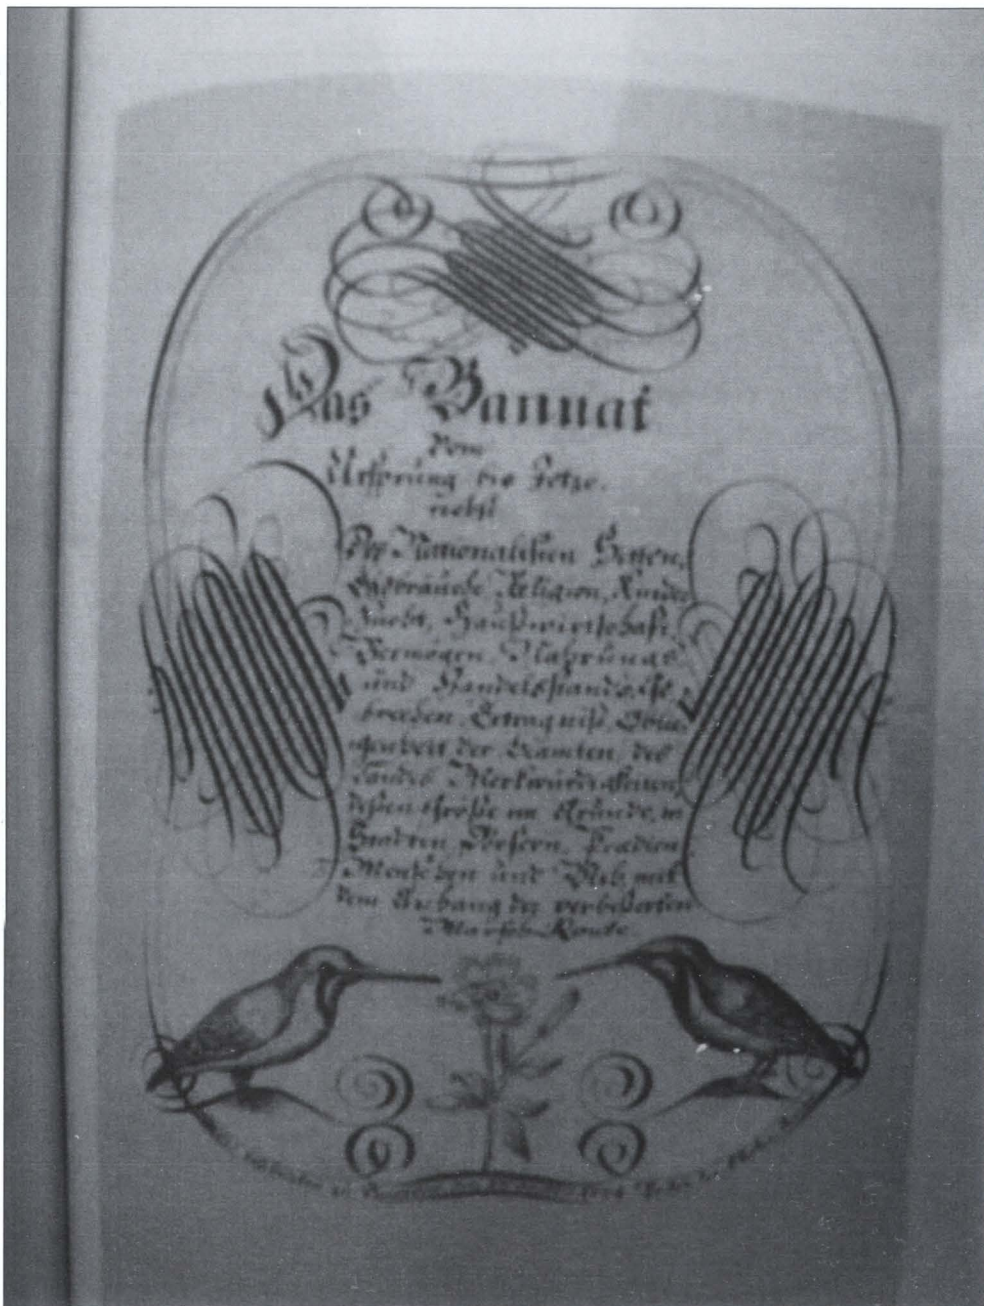 Das Bannat
Vom
Ursprung bis Jetzo.
nebst
Der Nationalisten Sitten,
Gebräuche Religion, Kinder
Zucht, Haußwirtschaft,
Vermögen, Nahrungs
und Handelsstands,
Erträgniß,
der Beamten, des
Landes Merkwürdigkeiten,
deßen Größe im Grunde, in
Städten, Dörfern, Prædien
Menschen und Vieh, mit
dem Anhang der verbeßerten
Marsch-Route